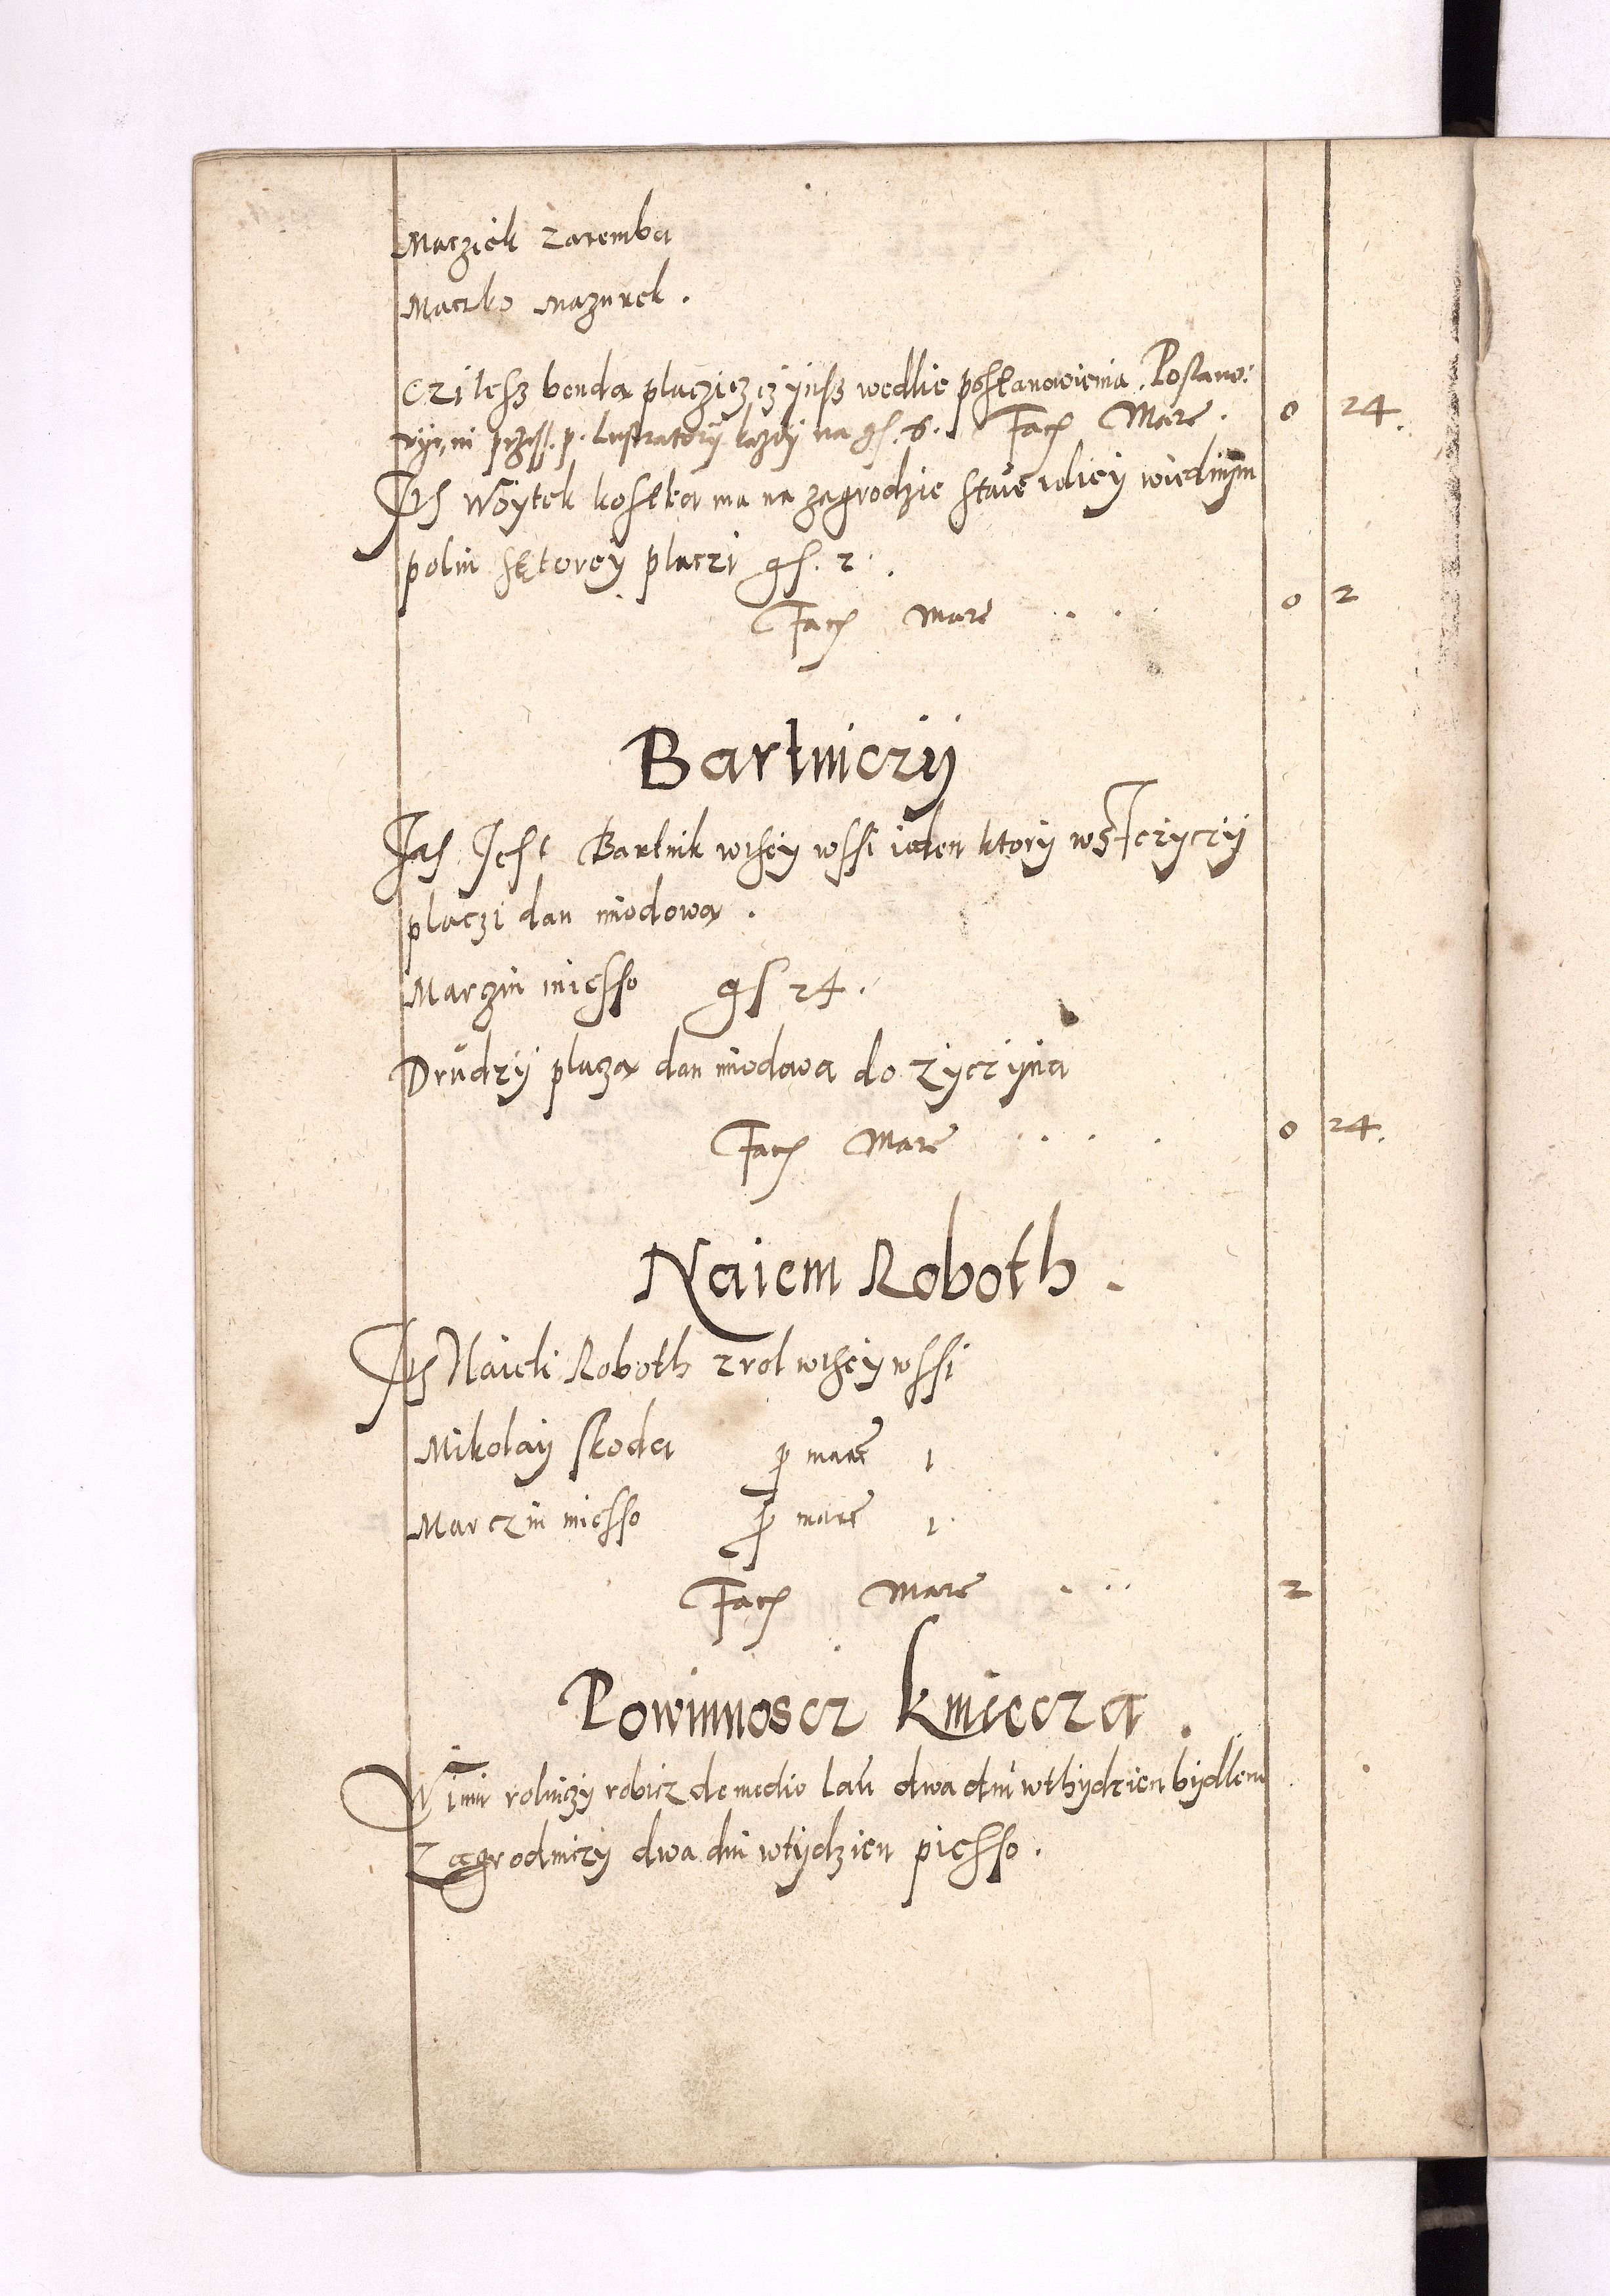 Macziek Zaremba
Maczko Mazurek.
Czi tesz benda placzicz czÿnsz wedlie postanowienia. Postano:
przess. p. Lustratorÿ kazdÿ na gs. 6. Facȝ Marc. 0 24.
Woÿtek kostka ma na zagrodzie staie roliey wiednÿm
poliu sktorey placzi gs. 2.
Facȝ Marc . . . . 0 2
Bartniczÿ
Jest Bartnik wtheÿ wssi ieden ktorÿ
placzi dan miodowa.
Marczin miesso gs 24.
Drudzÿ placza dan miodowa do Zÿczÿna
Facȝ Marc . . . . 0 24.
Naiem Roboth.
Naieli Roboth z rol wtheÿ wssi
Mikolaÿ Skoda ꝓ marc 1
Marczin miesso ꝓ marc 1.
Facȝ Marc . . . 2
Powinnoscz kmiecza.
Winni rolniczÿ robicz de medio lan dwa dni wthÿdzien bÿdlem
Zagrodniczÿ dwa dni wtÿdzien piesso.